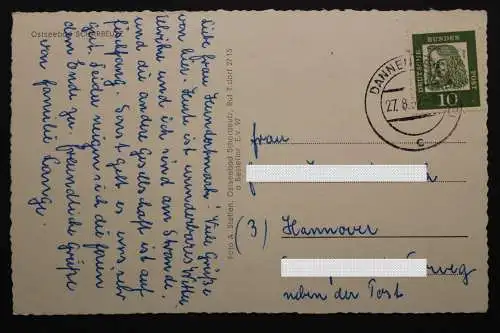 Ostseebad SCHARBEUTZ
Liebe Frau Hundertmark! Viele Grüße
von hier. Heute ist wunderbares Wetter,
Ulrike und ich sind am Strande,
und die andere Gesellschaft ist auf
Fischfang. Sonst geht es uns sehr
gut. Leider neigen sich die Ferien
dem Ende zu. Freundliche Grüße
von Familie Lange.
Foto A. Steffen, Ostseebad Scharbeutz, Ruf T.dorf 2715
DEUTSCHE BUNDESPOST
10
DANNE
27.8.
c
Frau
(3) Hannover
weg
neben der Post